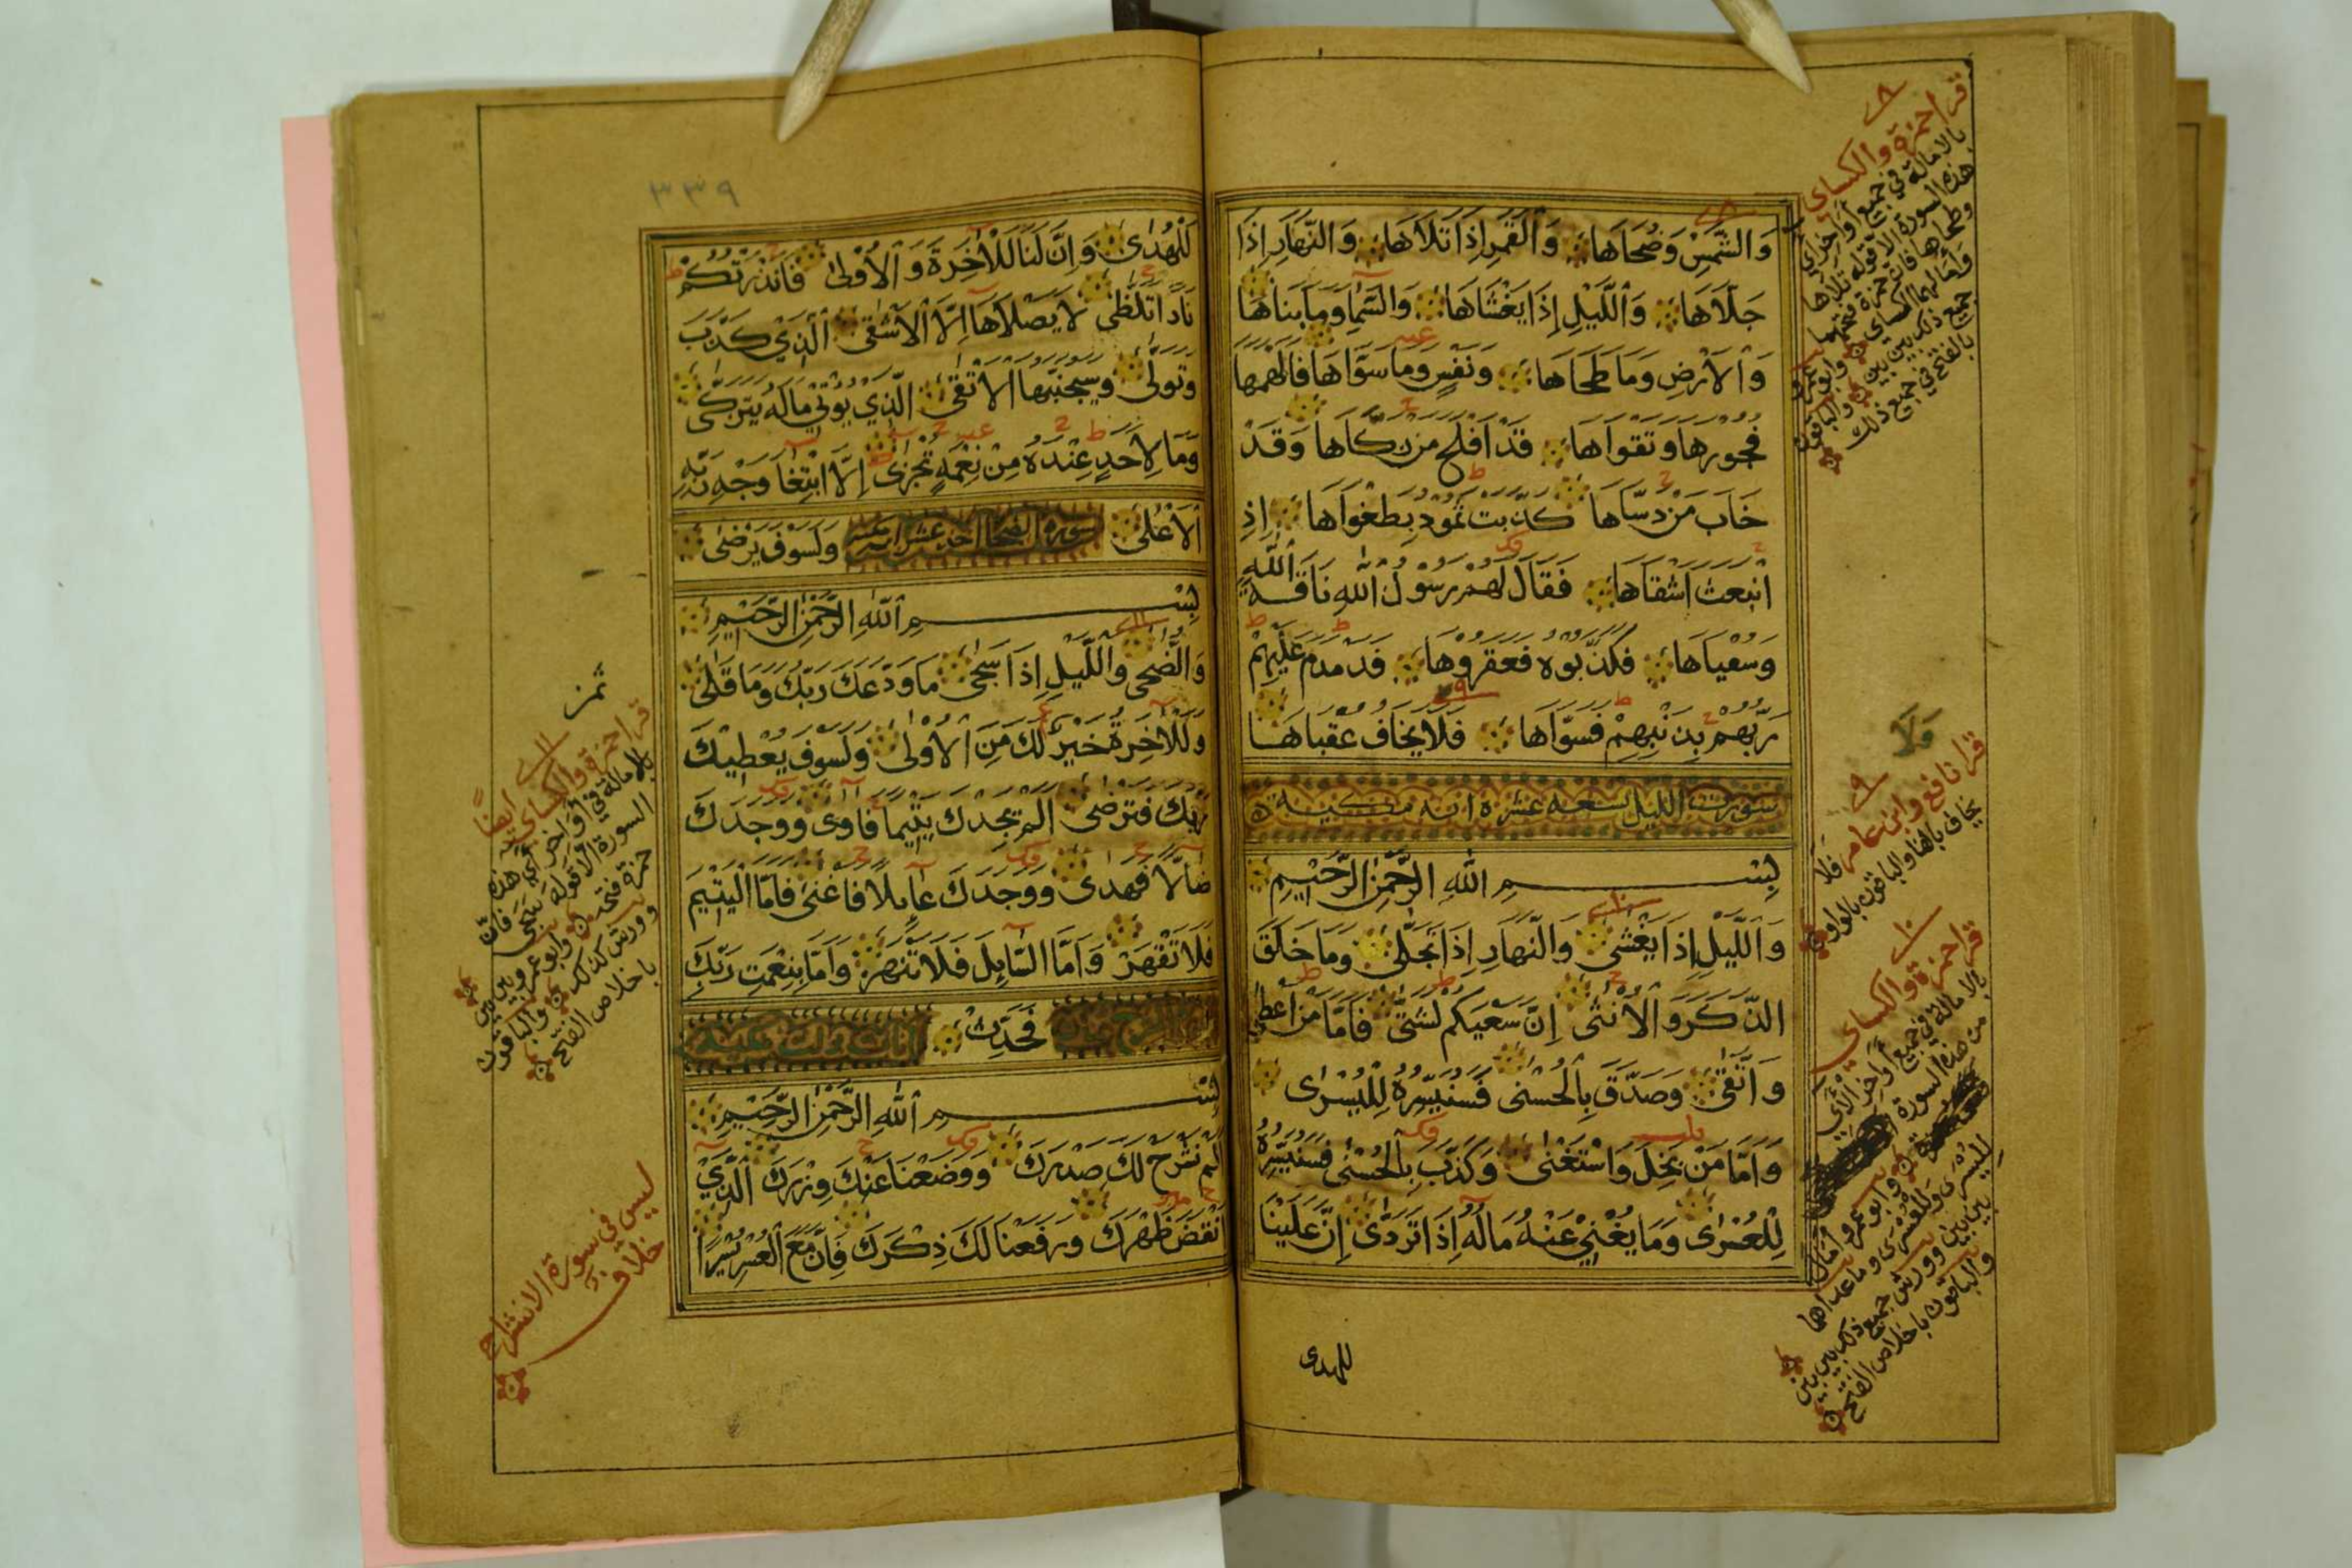 وَالشَّمْسِ وَضُحَاهَا وَالْقَمَرِ إِذَا تَلَاهَا وَالنَّهَارِ إِذَا
جَلَّاهَا وَاللَّيْلِ إِذَا يَغْشَاهَا وَالسَّمَا وَمَا بَنَاهَا
وَالْأَرْضِ وَمَا طَحَاهَا وَنَفْسٍ وَمَا سَوَّاهَا فَأَلْهَمَهَا
فُجُورَهَا وَتَقْوَاهَا قَدْ أَفْلَحَ مَنْ زَكَّاهَا وَقَدْ
خَابَ مَنْ دَسَّاهَا كَذَّبَتْ ثَمُودُ بِطَغْوَاهَا إِذِ
انْبَعَثَ أَشْقَاهَا فَقَالَ لَهُمْ رَسُولُ اللَّهِ نَاقَةَ اللَّهِ
وَسُقْيَاهَا فَكَذَّبُوهُ فَعَقَرُوهَا فَدَمْدَمَ عَلَيْهِمْ
رَبُّهُمْ بِذَنْبِهِمْ فَسَوَّاهَا فَلَا يَخَافُ عُقْبَاهَا
سورت الليل تسعه عشره ايه مكيه
بِسْمِ اللَّهِ الرَّحْمَنِ الرَّحِيمِ
وَاللَّيْلِ إِذَا يَغْشَى وَالنَّهَارِ إِذَا تَجَلَّى وَمَا خَلَقَ
الذَّكَرَ وَالْأُنْثَى إِنَّ سَعْيَكُمْ لَشَتَّى فَأَمَّا مَنْ أَعْطَى
وَاتَّقَى وَصَدَّقَ بِالْحُسْنَى فَسَنُيَسِّرُهُ لِلْيُسْرَى
وَأَمَّا مَنْ بَخِلَ وَاسْتَغْنَى وَكَذَّبَ بِالْحُسْنَى فَسَنُيَسِّرُهُ
لِلْعُسْرَى وَمَا يُغْنِي عَنْهُ مَالُهُ إِذَا تَرَدَّى إِنَّ عَلَيْنَا
للهدى
قرا حمزة والكساى
بالامالة في جميع اواخر اي
هذه السورة الا قوله تلاها
وطحاها فان حمزة فتحهما
وامالهما الكساى وابو عمرو
جميع ذلك بين بين والباقون
بالفتح في جميع ذلك
قرا نافع وابن عامر فلا
يخاف بالفا والباقون بالواو
قرا حمزة والكساى
بالامالة في جميع اواخر الاي
من هذه السورة
وابو عمرو امال
لليسرى وللعسرى وما عداها
بين بين وورش جميع ذلك بين بين
والباقون باخلاص الفتح
٣٣٩
لَلْهُدَى وَإِنَّ لَنَا لَلْآخِرَةَ وَالْأُولَى فَأَنْذَرْتُكُمْ
نَارًا تَلَظَّى لَا يَصْلَاهَا إِلَّا الْأَشْقَى الَّذِي كَذَّبَ
وَتَوَلَّى وَسَيُجَنَّبُهَا الْأَتْقَى الَّذِي يُؤْتِي مَالَهُ يَتَزَكَّى
وَمَا لِأَحَدٍ عِنْدَهُ مِنْ نِعْمَةٍ تُجْزَى إِلَّا ابْتِغَا وَجْهِ رَبِّهِ
الْأَعْلَى سورة الضحا احد عشر ايه وَلَسَوْفَ يَرْضَى
بِسْمِ اللَّهِ الرَّحْمَنِ الرَّحِيمِ
وَالضُّحَى وَاللَّيْلِ إِذَا سَجَى مَا وَدَّعَكَ رَبُّكَ وَمَا قَلَى
وَلَلْآخِرَةُ خَيْرٌ لَكَ مِنَ الْأُولَى وَلَسَوْفَ يُعْطِيكَ
رَبُّكَ فَتَرْضَى أَلَمْ يَجِدْكَ يَتِيمًا فَآوَى وَوَجَدَكَ
ضَالًّا فَهَدَى وَوَجَدَكَ عَائِلًا فَأَغْنَى فَأَمَّا الْيَتِيمَ
فَلَا تَقْهَرْ وَأَمَّا السَّائِلَ فَلَا تَنْهَرْ وَأَمَّا بِنِعْمَتِ رَبِّكَ
فَحَدِّثْ
بِسْمِ اللَّهِ الرَّحْمَنِ الرَّحِيمِ
أَلَمْ نَشْرَحْ لَكَ صَدْرَكَ وَوَضَعْنَا عَنْكَ وِزْرَكَ الَّذِي
أَنْقَضَ ظَهْرَكَ وَرَفَعْنَا لَكَ ذِكْرَكَ فَإِنَّ مَعَ الْعُسْرِ يُسْرًا
قرا حمزة والكساى ايضًا
بالامالة في اواخر اي هذه
السورة الا قوله سجى فان
حمزة فتحه وابو عمرو بين بين
وورش كذلك والباقون
باخلاص الفتح
ليس في سورة الانشراح
خلاف